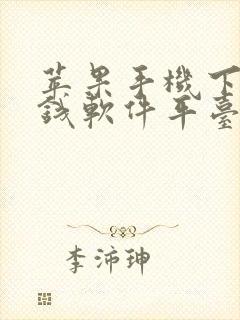 苹果手機下
錢軟件平臺
李沛珅